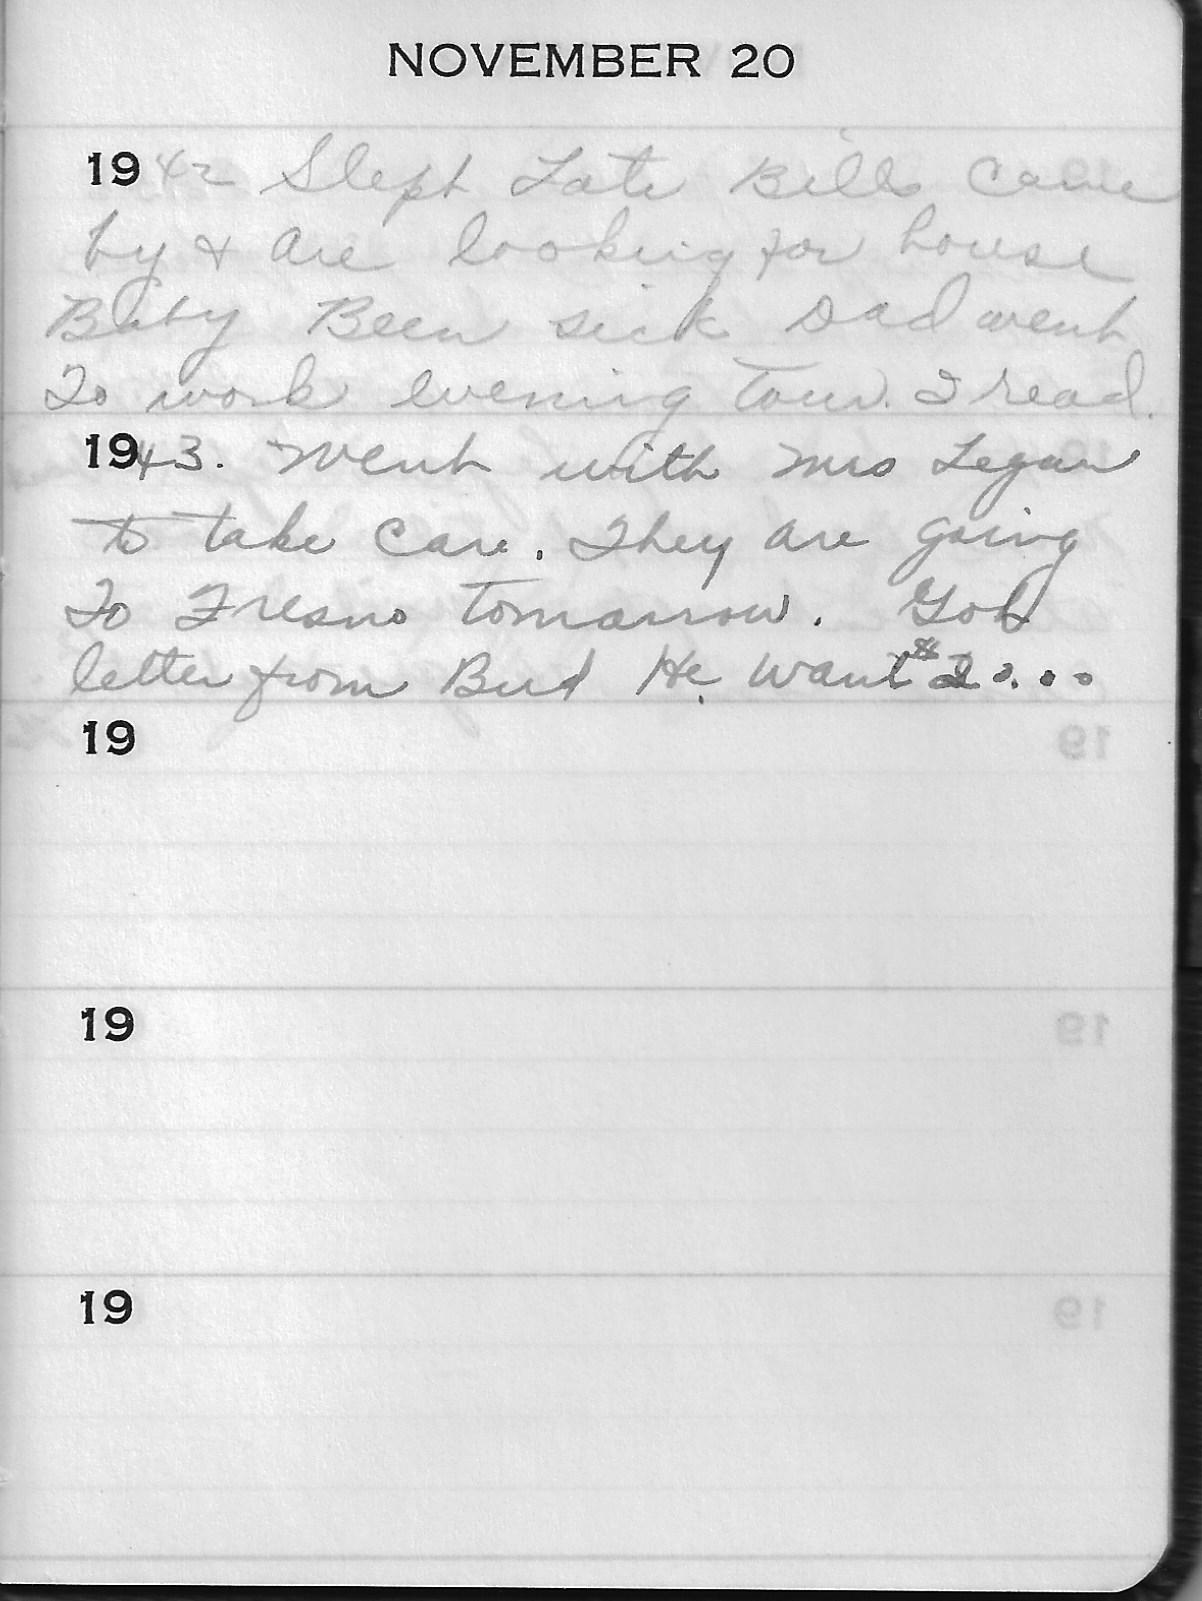 NOVEMBER 20
1942 Slept Late Bills came
by & are looking for house
Baby Been sick Dad went
To work evening Tour. I read.
1943. Went with Mrs Legan
to take care. They are going
To Fresno tomorrow. Got
letter from Bud He want $20.00
19
19
19